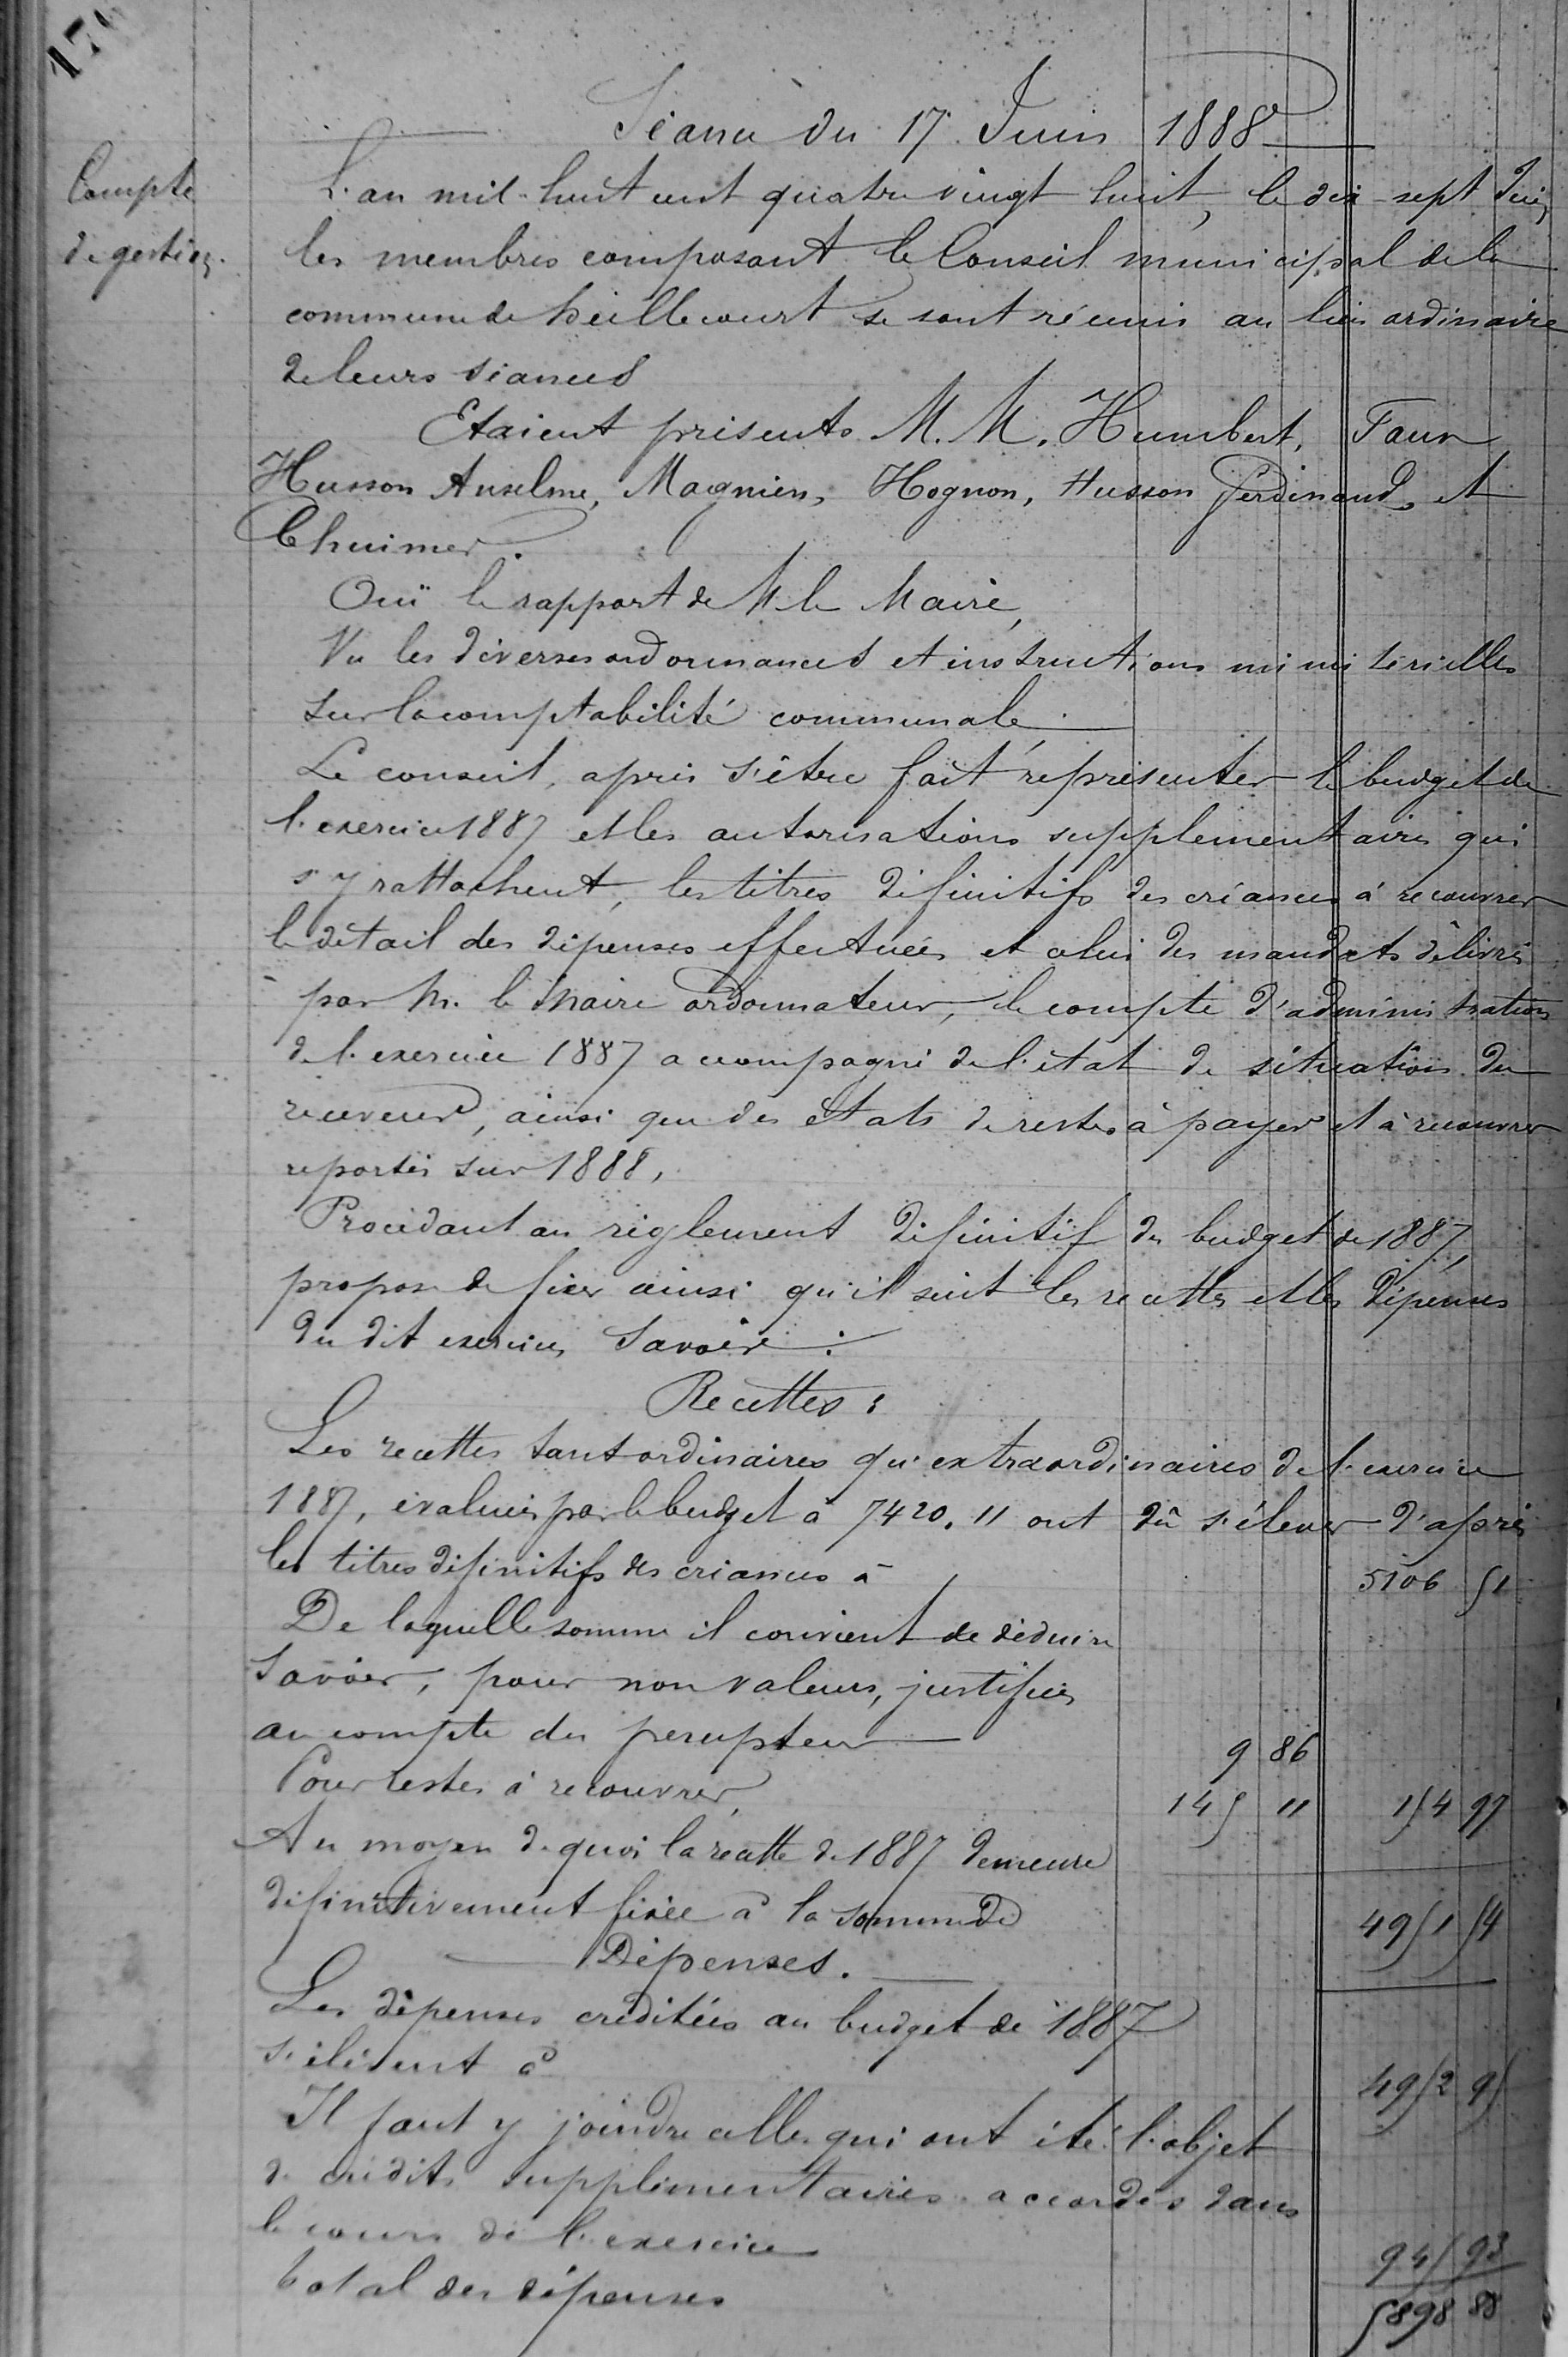 Séance du 17 Juin 1888
Compte
de gestion.
L'an mil-huit cent quatre vingt huit, le dix-sept Juin
les membres composant le Conseil municipal de la
commune de heillecourt se sont réunis au lieu ordinaire
de leurs séances
Etaient présents M. M. Humbert, Faur
Husson Anselme, Magnien, Hognon, Husson Ferdinand, et
Chuimer.
Ouï le rapport de M le Maire,
Vu les diverses ordonnances et instructions ministérielles
sur la comptabilité communale
Le conseil, après s'être fait représenter le budget de
l'exercice 1887 et les autorisations supplementaires qui
s'y rattachent, les titres définitifs des créances à recouvrer
le détail des dépenses effectuées et celui des mandats délivrés
par M. le Maire ordonnateur, le compte d'administration
de l'exercice 1887 accompagné de l'état de situation du
receveur, ainsi que des états de restes à payer et à recouvrer
reportés sur 1888,
Procédant au règlement définitif du budget de 1887,
propose de fixer ainsi qu'il suit les recettes et les dépenses
du dit exercice, Savoir :
Recettes :
Les recettes tant ordinaires qu'extraordinaires de l'exercice
1887, évaluées par le budget à 7420.11 ont dû s'élever d'après
les titres définitifs des créances à 5106 51
De laquelle somme il convient de déduire
Savoir, pour non valeurs, justifiées
au compte du percepteur 9 86
Pour restes à recouvrer, 145 11 154 97
Au moyen de quoi la recette de 1887 demeure
définitivement fixée à la somme de 4951 54
Dépenses.
Les dépenses créditées au budget de 1887
s'élèvent à 4952 95
Il faut y joindre celles qui ont été l'objet
de crédits supplémentaires accordés dans
le cours de l'exercice 945 93
total des dépenses 5898 88